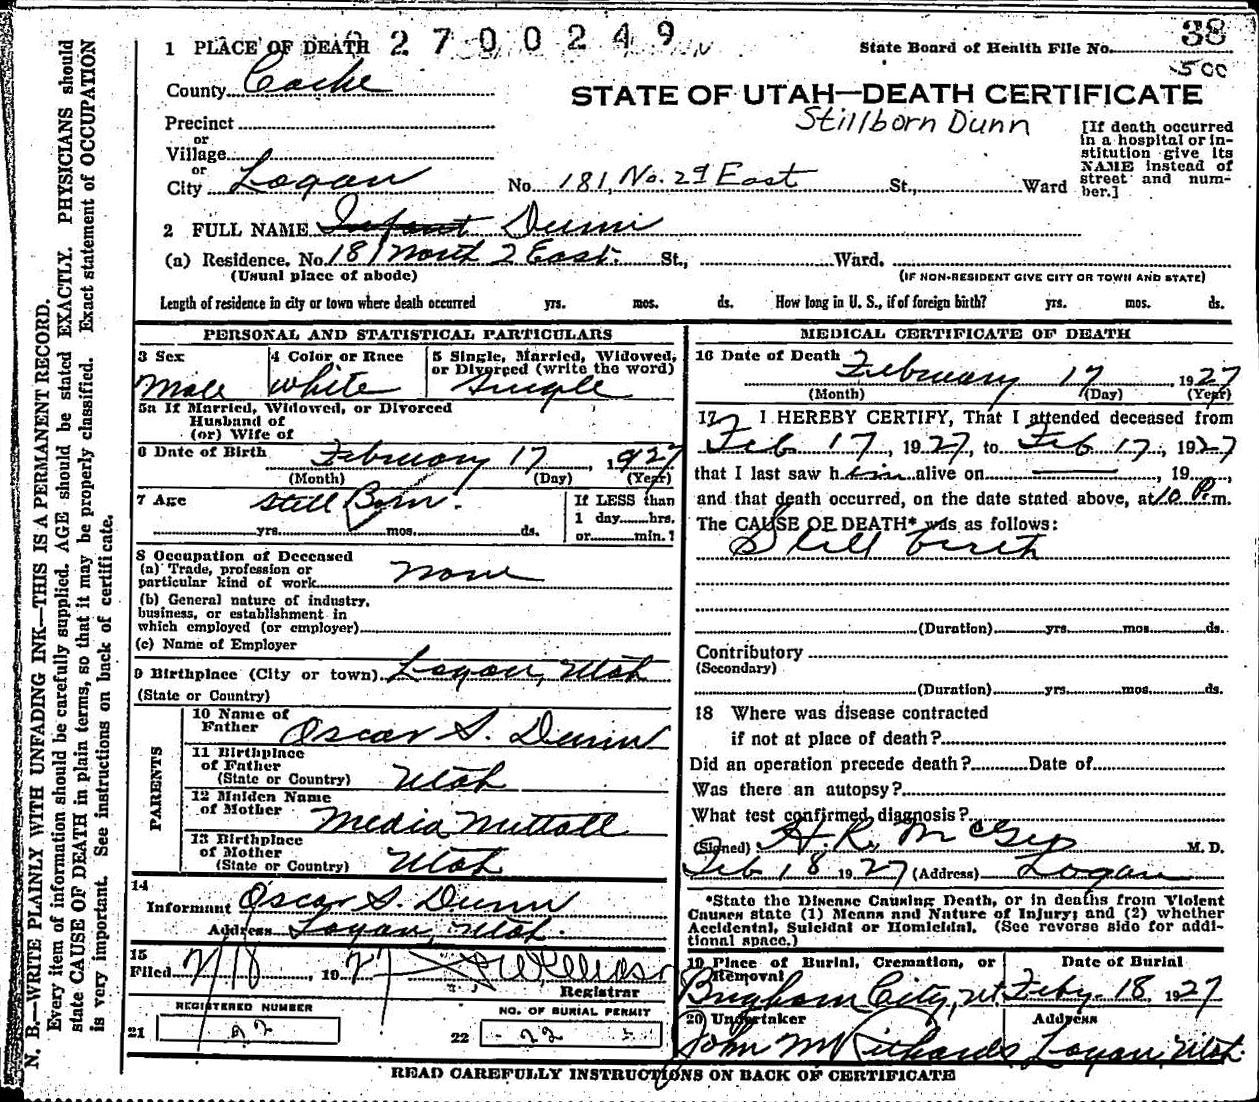 1 PLACE OF DEATH 2700249
State Board of Health File No. 38
500
County Cache
STATE OF UTAH—DEATH CERTIFICATE
Stillborn Dunn
Precinct
or
Village
or
City Logan No. 181, No. 2d East St., Ward
[If death occurred
in a hospital or in-
stitution give its
NAME instead of
street and num-
ber.]
2 FULL NAME Infant Dunn
(a) Residence. No. 181 North 2 East St., Ward.
(Usual place of abode) (IF NON-RESIDENT GIVE CITY OR TOWN AND STATE)
Length of residence in city or town where death occurred yrs. mos. ds. How long in U. S., if of foreign birth? yrs. mos. ds.
PERSONAL AND STATISTICAL PARTICULARS
3 Sex 4 Color or Race 5 Single, Married, Widowed,
or Divorced (write the word)
Male White Single
5a If Married, Widowed, or Divorced
Husband of
(or) Wife of
6 Date of Birth February 17, 1927
(Month) (Day) (Year)
7 Age Still Born.
yrs. mos. ds.
If LESS than
1 day hrs.
or min.?
8 Occupation of Deceased
(a) Trade, profession or
particular kind of work None
(b) General nature of industry,
business, or establishment in
which employed (or employer)
(c) Name of Employer
9 Birthplace (City or town) Logan, Utah
(State or Country)
PARENTS
10 Name of
Father Oscar S. Dunn
11 Birthplace
of Father
(State or Country) Utah
12 Maiden Name
of Mother Media
13 Birthplace
of Mother
(State or Country) Utah
14
Informant Oscar S. Dunn
Address Logan, Utah.
15
Filed 2/18, 1927
Registrar
REGISTERED NUMBER
NO. OF BURIAL PERMIT
21 22
MEDICAL CERTIFICATE OF DEATH
16 Date of Death February 17, 1927
(Month) (Day) (Year)
17 I HEREBY CERTIFY, That I attended deceased from
Feb 17, 1927, to Feb 17, 1927
that I last saw him alive on , 19 ,
and that death occurred, on the date stated above, at 10 P.m.
The CAUSE OF DEATH* was as follows:
Still birth
(Duration) yrs. mos. ds.
Contributory
(Secondary)
(Duration) yrs. mos. ds.
18 Where was disease contracted
if not at place of death?
Did an operation precede death? Date of
Was there an autopsy?
What test confirmed diagnosis?
(Signed) H. R. McGee M. D.
Feb 18 1927 (Address) Logan
*State the Disease Causing Death, or in deaths from Violent
Causes state (1) Means and Nature of Injury; and (2) whether
Accidental, Suicidal or Homicidal. (See reverse side for addi-
tional space.)
19 Place of Burial, Cremation, or
Removal
Date of Burial
Brigham City, Ut. Feby. 18 1927
20 Undertaker Address
John M Richards Logan, Utah.
READ CAREFULLY INSTRUCTIONS ON BACK OF CERTIFICATE
N. B.—WRITE PLAINLY WITH UNFADING INK—THIS IS A PERMANENT RECORD.
Every item of information should be carefully supplied. AGE should be stated EXACTLY. PHYSICIANS should
state CAUSE OF DEATH in plain terms, so that it may be properly classified. Exact statement of OCCUPATION
is very important. See instructions on back of certificate.